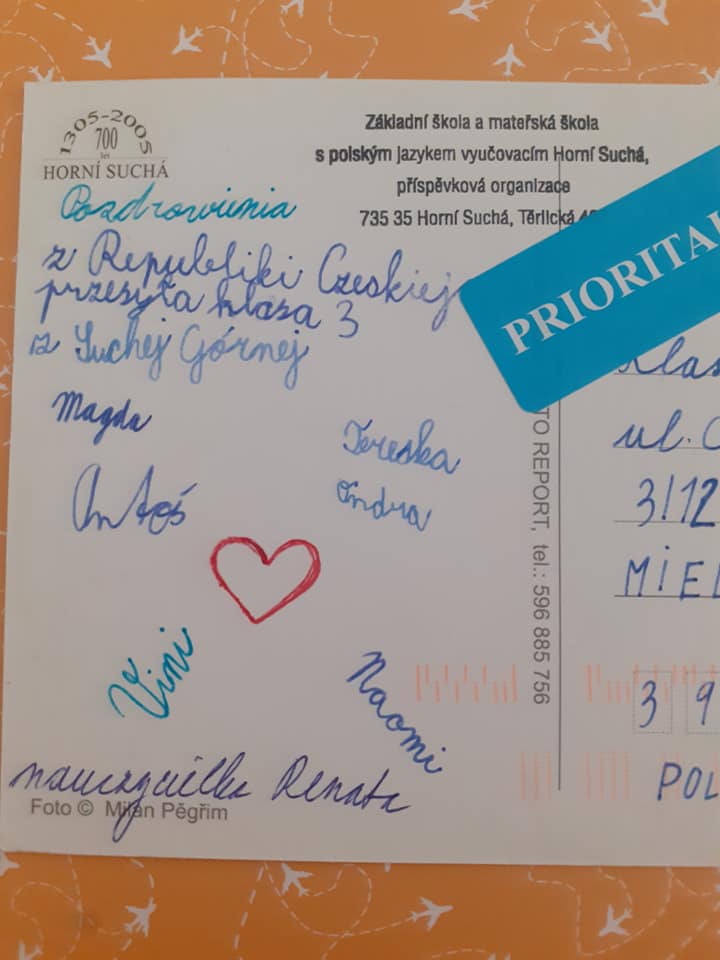 1305-2005
700
let
HORNÍ SUCHÁ
Základní škola a mateřská škola
s polským jazykem vyučovacím Horní Suchá,
příspěvková organizace
735 35 Horní Suchá, Těrlická
Pozdrowienia
z Republiki Czeskiej
przesyła klasa 3
z Suchej Górnej
PRIORITA
Magda
Tereska
Antoś
Indra
Vini
Naomi
nauczycielka Renata
Foto © Milan Pěgřim
TO REPORT, tel.: 596 885 756
ul.
3/12
MIEL
3 9
POL